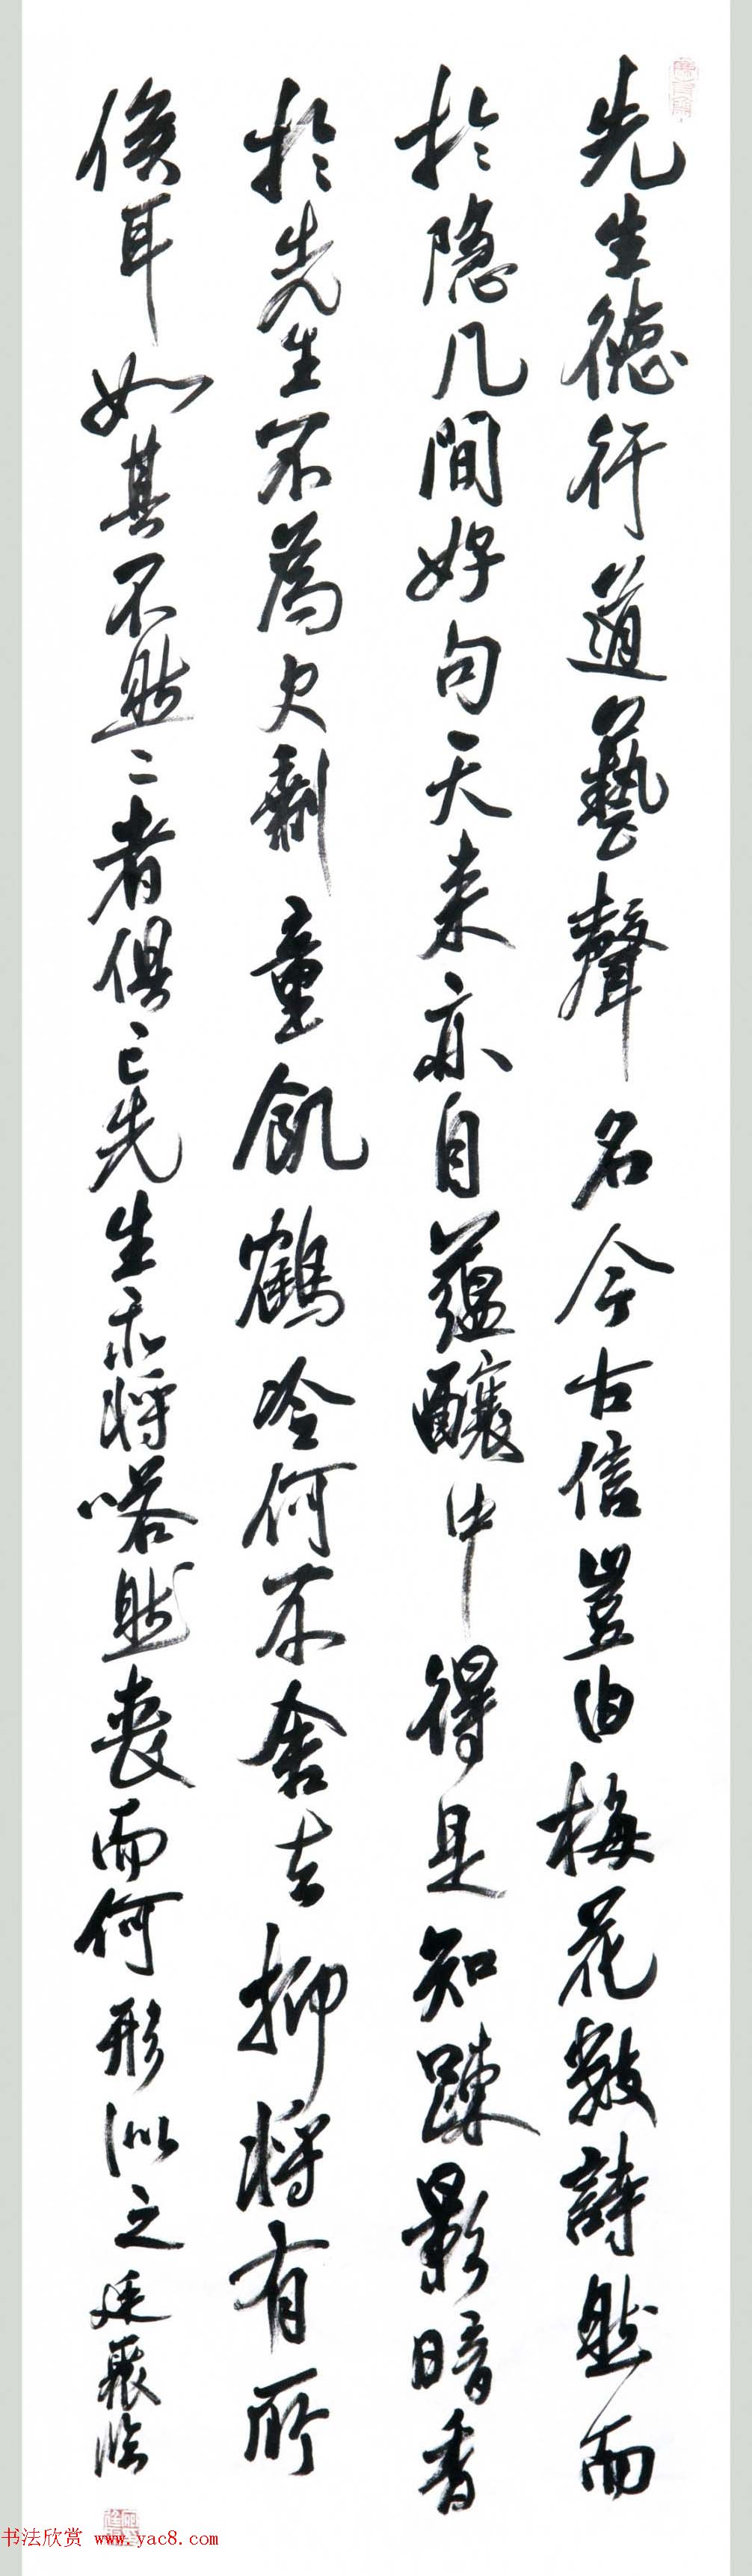 先生德行道藝聲名今古信豈由梅花數詩然而
於隐几間好句天来亦自蕴釀中得是知踈影暗香
於先生不為欠剩童飢鶴冷何不舍去抑将有所
俟耳如其不然二者俱已先生亦将嗒然丧而何形似之廷聚临
书法欣赏 www.yac8.com